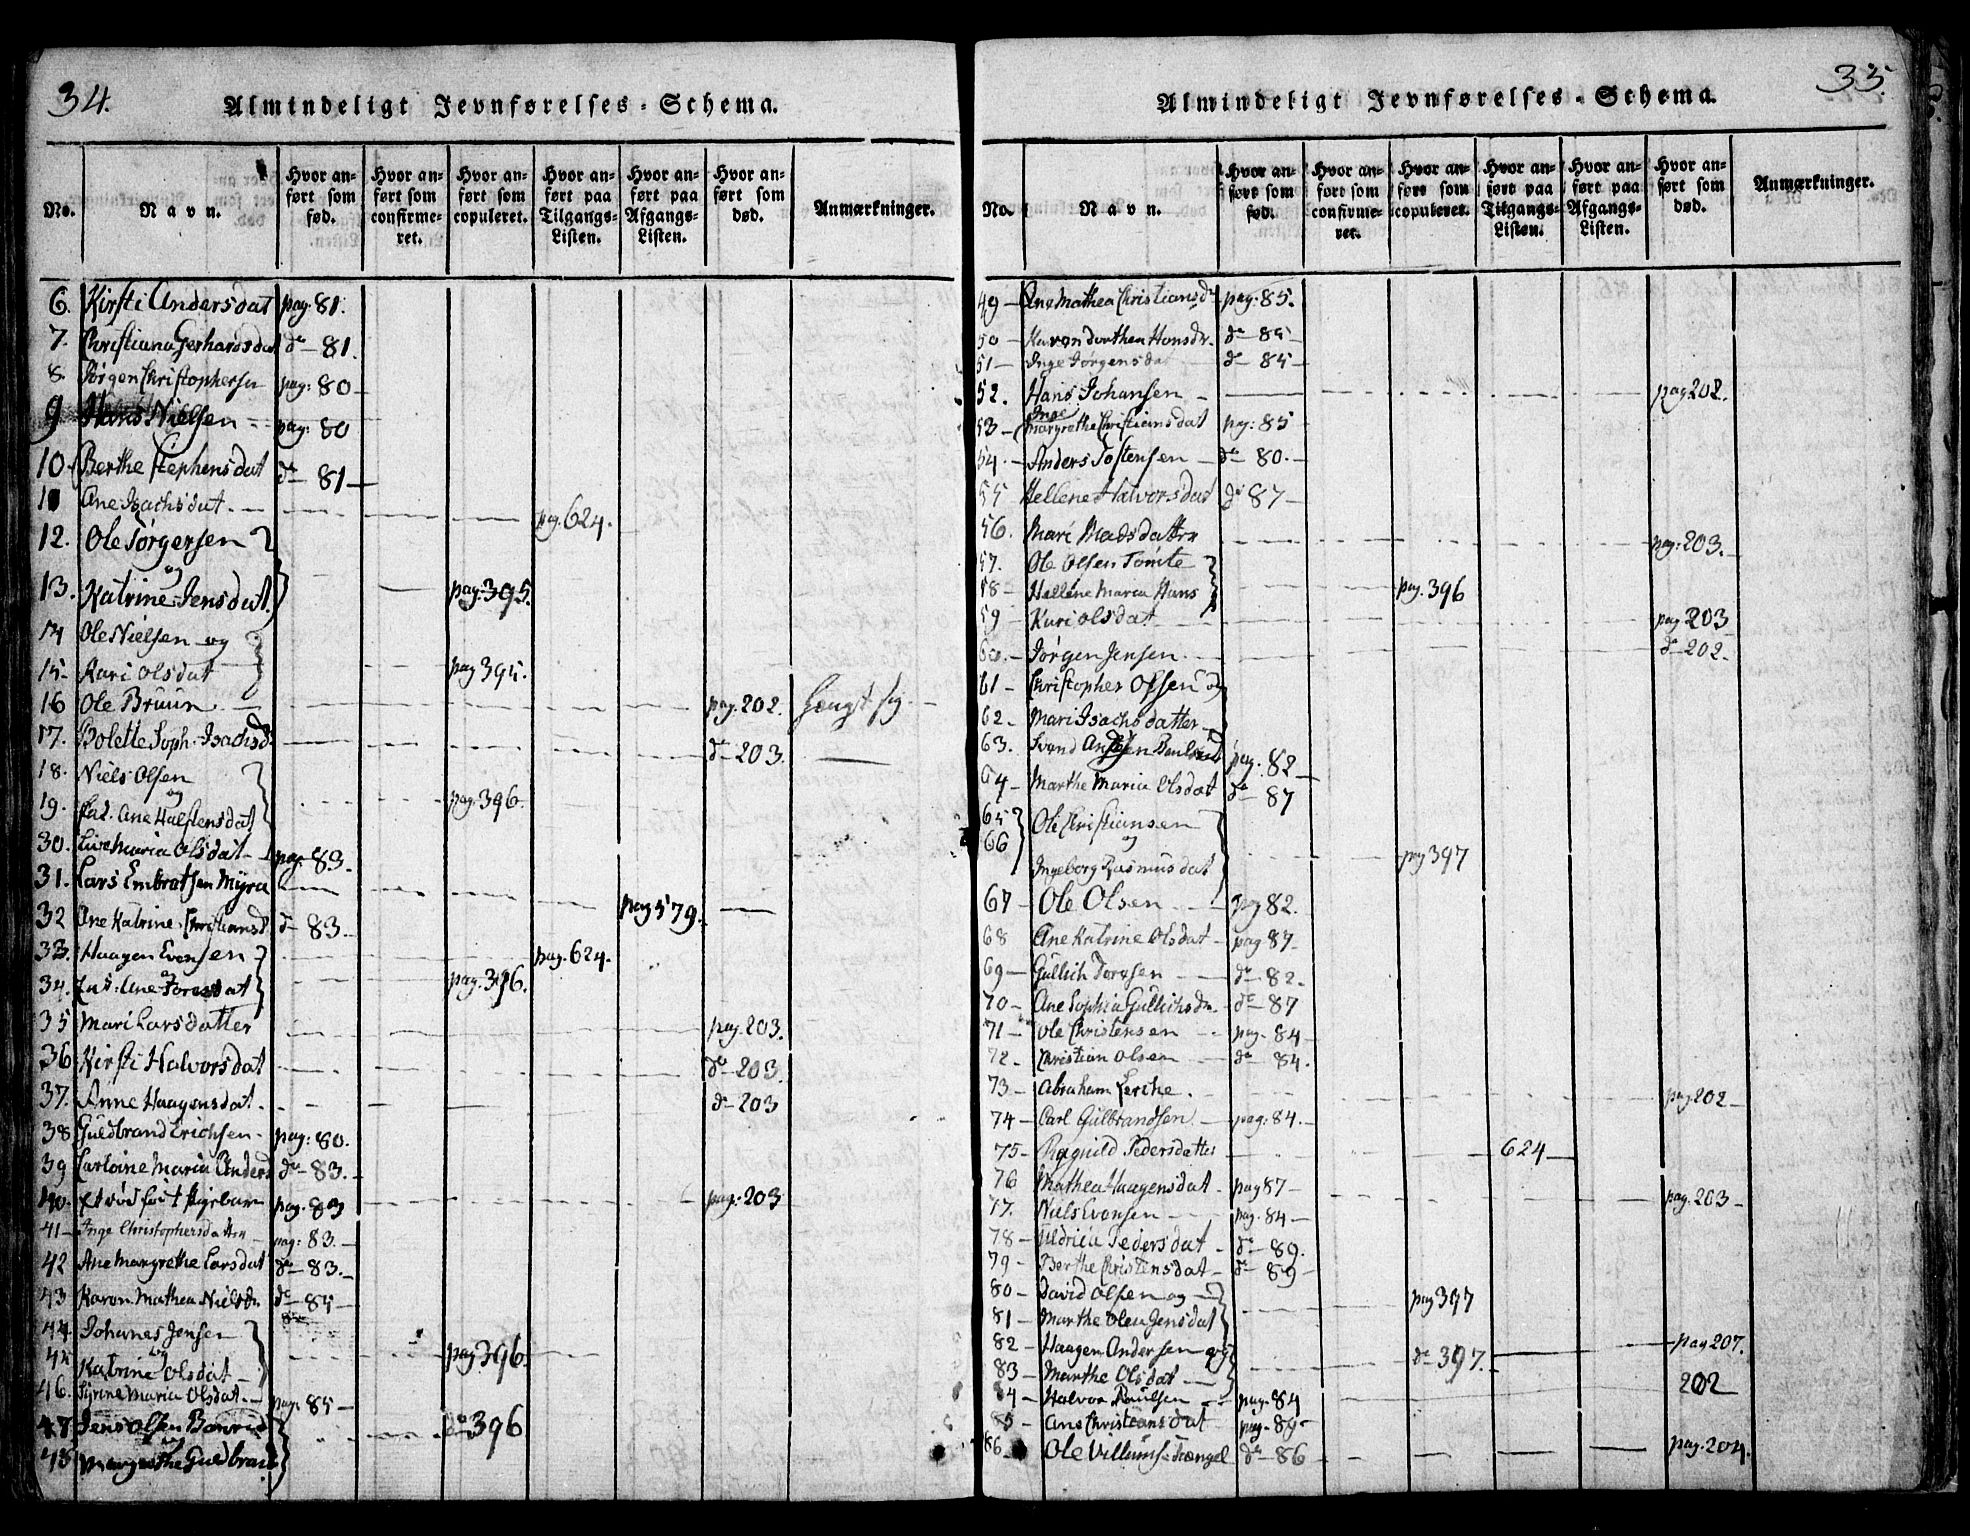 34.
Almindeligt Jevnførelses-Schema.
No.
Navn.
Hvor anført som fød.
Hvor anført som confirmeret.
Hvor anført som copuleret.
Hvor anført paa Tilgangs-Listen.
Hvor anført paa Afgangs-Listen.
Hvor anført som død.
Anmærkninger.
6. Kirsti Andersdat pag. 81.
7. Christiana Gerhardsdat do 81.
8. Jørgen Christophersen pag: 80
9 Hans Nielsen pag: 80
10 Berthe Stephensdat do 81
11 Ane Isachsdat. pag. 624.
12. Ole Jørgensen
og
13. Katrine Jensdat. pag. 395.
14 Ole Nielsen og
15 Kari Olsdat pag 395.
16 Ole Bruun pag. 202.
17. Bolette Soph. Isachsd. do 203.
18. Niels Olsen
og
19. Ane Halstensdat pag. 396.
30. Live Maria Olsdat pag. 83.
31. Lars Embretsen Myra pag 579.
32 Ane Katrine Christiansd do 83.
33. Haagen Evensen pag. 624.
34. Ane Toresdat pag. 396.
35 Mari Larsdatter pag. 203.
36 Kirsti Halvorsdat do 203.
37. Anne Haagensdat. do 203
38 Guldbrand Erichsen pag: 80.
39 Carloine Maria Anders do 83.
40. pag. 83 pag. 203
41 Inge Christophersdatter pag: 83.
42 Ane Margrethe Larsdat do 83.
43 Karen Mathea Nielsdr. do 85
44 Johanes Jensen
og
45 Katrine Olsdat pag 396.
46. Sirine Maria Olsdat pag. 85
47 Jens Olsen do 396
og
48 Margrethe Guldbrand
35.
Almindeligt Jevnførelses-Schema.
No.
Navn.
Hvor anført som fød.
Hvor anført som confirmeret.
Hvor anført som copuleret.
Hvor anført paa Tilgangs-Listen.
Hvor anført paa Afgangs-Listen.
Hvor anført som død.
Anmærkninger.
49 Ane Mathea Christiansdr pag: 85.
50 Karen Dorthea Hansdr. do 85
51 Inge Jørgensdat do 85
52. Hans Johansen pag 202.
Inge
53 Margrethe Christiansdat pag: 85
54. Anders Tostensen do 80.
55 Hellene Halvorsdat do 87
56. Mari Madsdatter pag: 203.
57. Ole Olsen Tomte
58 Hellene Maria Hans pag. 396
59 Kari Olsdat pag. 203
60. Jørgen Jensen do 202.
61 Christopher Olsen og
62. Mari Isachsdatter
63. Svend pag. 82
64 Marthe Maria Olsdat do 87
65 Ole Christiansen
66 og
Ingeborg Rasmusdat pag 397
67 Ole Olsen pag 82.
68 Ane Katrine Olsdat pag 87
69 Gullich Toresen do 82.
70 Ane Sophia Gullichsdr. do 87
71 Ole Christensen pag. 84
72. Christian Olsen do 84.
73 Abraham Lerche. pag. 202
74 Carl Gulbrandsen pag: 84.
75 Ragnild Pedersdatter 624
76 Mathea Haagensdat pag 87 pag. 203
77. Niels Evensen pag. 84
78 Uldrica Pedersdat do 89.
79 Berthe Christensdat do 89
80 David Olsen og
81 Marthe Olea Jensdat pag 397
82 Haagen Andersen og do 397. pag 207.
83 Marthe Olsdat 202
84 Halvor Paulsen pag. 84
85 Ane Christiansdat pag. 89
86 Ole Villumsen do 86 pag. 204.